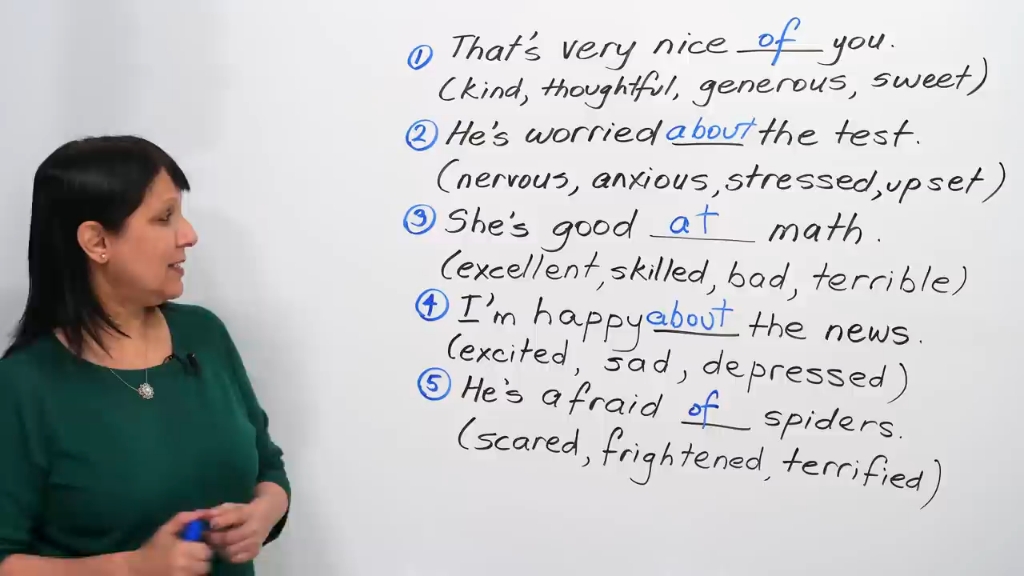 ① That's very nice of you.
(kind, thoughtful, generous, sweet)
② He's worried about the test.
(nervous, anxious, stressed, upset)
③ She's good at math.
(excellent, skilled, bad, terrible)
④ I'm happy about the news.
(excited, sad, depressed)
⑤ He's afraid of spiders.
(scared, frightened, terrified)